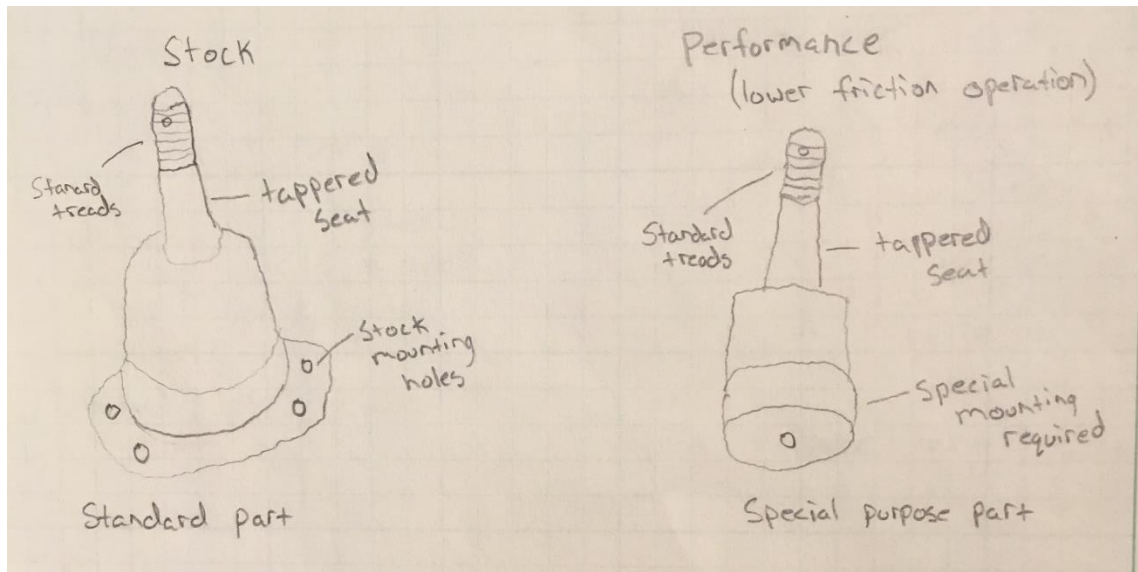 Stock
Stanard
treads
tappered
seat
Stock
mounting
holes
Standard part
Performance
(lower friction operation)
Standard
treads
tappered
seat
Special
mounting
required
Special purpose part